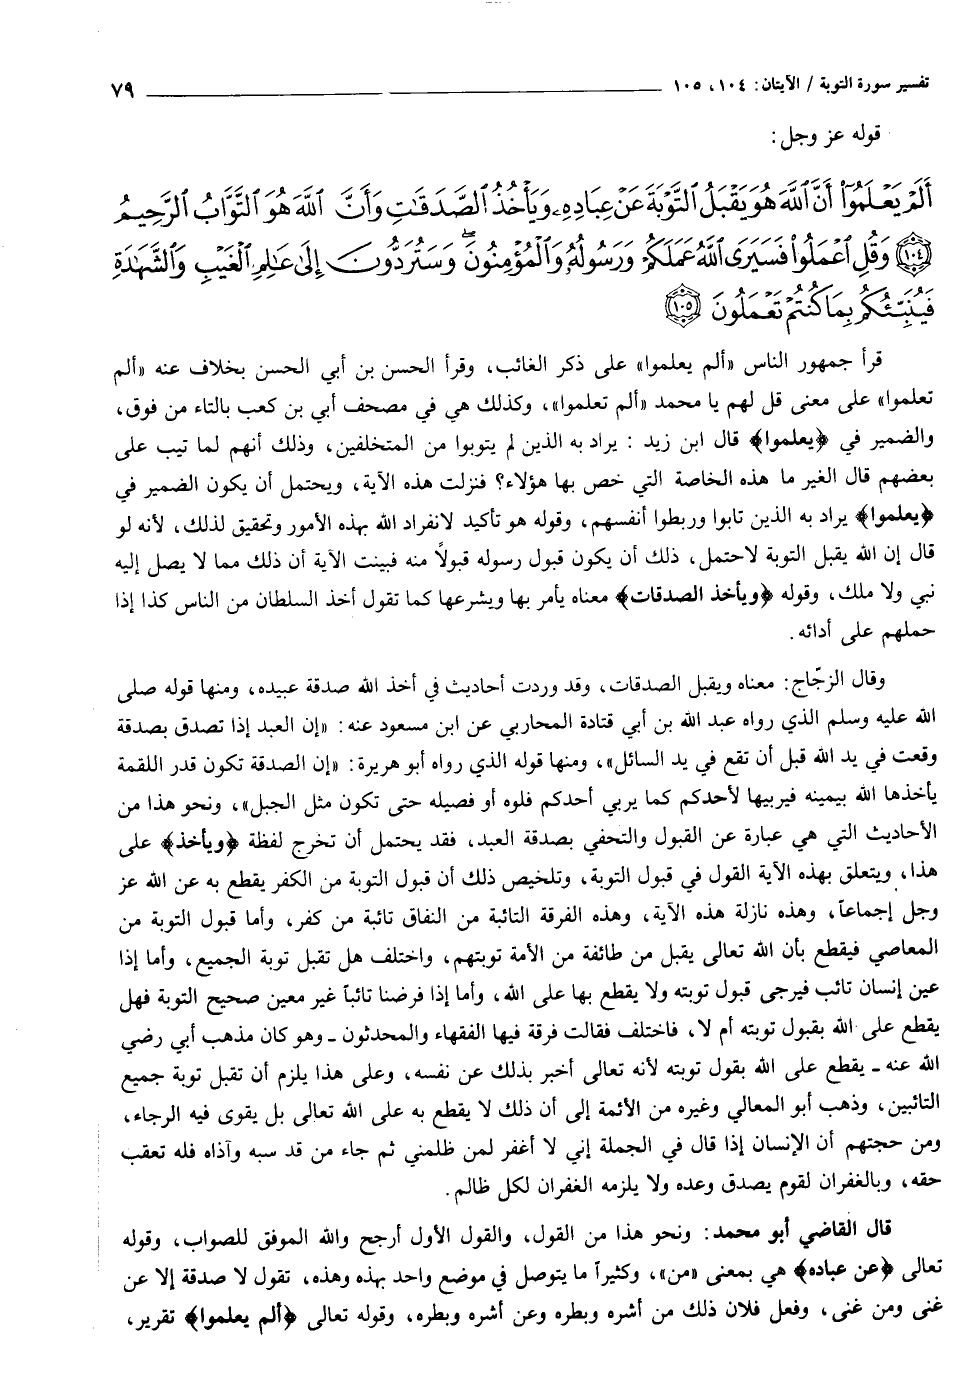 تفسير سورة التوبة / الآيتان: ١٠٤، ١٠٥ ٧٩
قوله عز وجل:
أَلَمْ يَعْلَمُوٓا۟ أَنَّ ٱللَّهَ هُوَ يَقْبَلُ ٱلتَّوْبَةَ عَنْ عِبَادِهِۦ وَيَأْخُذُ ٱلصَّدَقَٰتِ وَأَنَّ ٱللَّهَ هُوَ ٱلتَّوَّابُ ٱلرَّحِيمُ
١٠٤ وَقُلِ ٱعْمَلُوا۟ فَسَيَرَى ٱللَّهُ عَمَلَكُمْ وَرَسُولُهُۥ وَٱلْمُؤْمِنُونَ ۖ وَسَتُرَدُّونَ إِلَىٰ عَٰلِمِ ٱلْغَيْبِ وَٱلشَّهَٰدَةِ
فَيُنَبِّئُكُم بِمَا كُنتُمْ تَعْمَلُونَ ١٠٥
قرأ جمهور الناس «ألم يعلموا» على ذكر الغائب، وقرأ الحسن بن أبي الحسن بخلاف عنه «ألم
تعلموا» على معنى قل لهم يا محمد «ألم تعلموا»، وكذلك هي في مصحف أبي بن كعب بالتاء من فوق،
والضمير في ﴿يعلموا﴾ قال ابن زيد : يراد به الذين لم يتوبوا من المتخلفين، وذلك أنهم لما تيب على
بعضهم قال الغير ما هذه الخاصة التي خص بها هؤلاء؟ فنزلت هذه الآية، ويحتمل أن يكون الضمير في
﴿يعلموا﴾ يراد به الذين تابوا وربطوا أنفسهم، وقوله هو تأكيد لانفراد الله بهذه الأمور وتحقيق لذلك، لأنه لو
قال إن الله يقبل التوبة لاحتمل، ذلك أن يكون قبول رسوله قبولاً منه فبينت الآية أن ذلك مما لا يصل إليه
نبي ولا ملك، وقوله ﴿ويأخذ الصدقات﴾ معناه يأمر بها ويشرعها كما تقول أخذ السلطان من الناس كذا إذا
حملهم على أدائه.
وقال الزجّاج: معناه ويقبل الصدقات، وقد وردت أحاديث في أخذ الله صدقة عبيده، ومنها قوله صلى
الله عليه وسلم الذي رواه عبد الله بن أبي قتادة المحاربي عن ابن مسعود عنه: «إن العبد إذا تصدق بصدقة
وقعت في يد الله قبل أن تقع في يد السائل»، ومنها قوله الذي رواه أبو هريرة: «إن الصدقة تكون قدر اللقمة
يأخذها الله بيمينه فيربيها لأحدكم كما يربي أحدكم فلوه أو فصيله حتى تكون مثل الجبل»، ونحو هذا من
الأحاديث التي هي عبارة عن القبول والتحفي بصدقة العبد، فقد يحتمل أن تخرج لفظة ﴿ويأخذ﴾ على
هذا، ويتعلق بهذه الآية القول في قبول التوبة، وتلخيص ذلك أن قبول التوبة من الكفر يقطع به عن الله عز
وجل إجماعاً، وهذه نازلة هذه الآية، وهذه الفرقة التائبة من النفاق تائبة من كفر، وأما قبول التوبة من
المعاصي فيقطع بأن الله تعالى يقبل من طائفة من الأمة توبتهم، واختلف هل تقبل توبة الجميع، وأما إذا
عين إنسان تائب فيرجى قبول توبته ولا يقطع بها على الله، وأما إذا فرضنا تائباً غير معين صحيح التوبة فهل
يقطع على الله بقبول توبته أم لا، فاختلف فقالت فرقة فيها الفقهاء والمحدثون ـ وهو كان مذهب أبي رضي
الله عنه ـ يقطع على الله بقول توبته لأنه تعالى أخبر بذلك عن نفسه، وعلى هذا يلزم أن تقبل توبة جميع
التائبين، وذهب أبو المعالي وغيره من الأئمة إلى أن ذلك لا يقطع به على الله تعالى بل يقوى فيه الرجاء،
ومن حجتهم أن الإنسان إذا قال في الجملة إني لا أغفر لمن ظلمني ثم جاء من قد سبه وآذاه فله تعقب
حقه، وبالغفران لقوم يصدق وعده ولا يلزمه الغفران لكل ظالم.
قال القاضي أبو محمد: ونحو هذا من القول، والقول الأول أرجح والله الموفق للصواب، وقوله
تعالى ﴿عن عباده﴾ هي بمعنى «من»، وكثيراً ما يتوصل في موضع واحد بهذه وهذه، تقول لا صدقة إلا عن
غنى ومن غنى، وفعل فلان ذلك من أشره وبطره وعن أشره وبطره، وقوله تعالى ﴿ألم يعلموا﴾ تقرير،